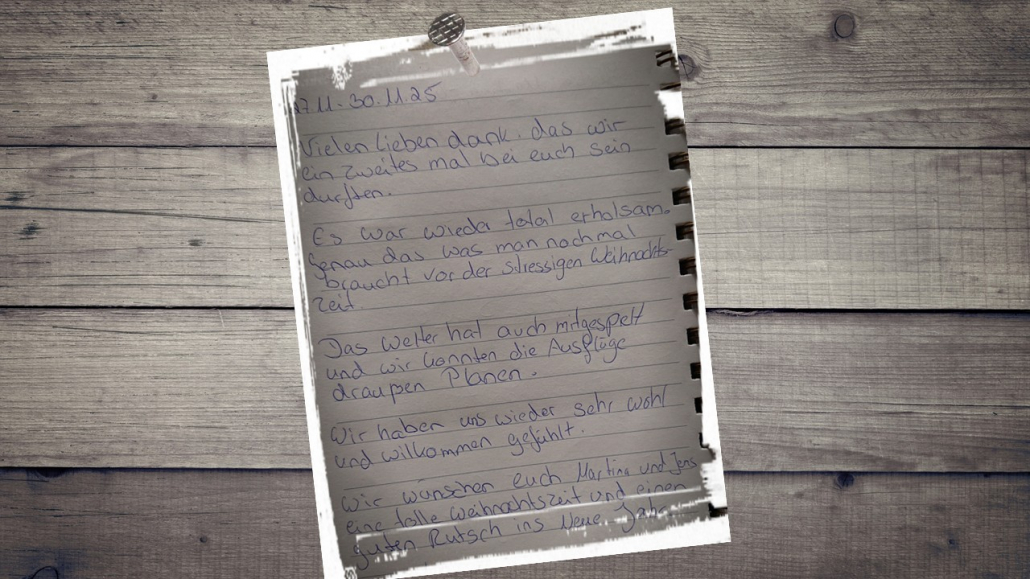 27.11.-30.11.25
Vielen lieben dank. das wir
ein zweites mal bei euch sein
durften.
Es war wieder total erholsam.
Genau das was man nochmal
braucht vor der stressigen Weihnachts-
zeit
Das Wetter hat auch mitgespelt
und wir konnten die Ausflüge
draußen Planen.
Wir haben uns wieder sehr wohl
und willkommen gefühlt.
Wir wünschen euch Martina und Jens
eine tolle Weihnachtszeit und einen
guten Rutsch ins Neue Jahr